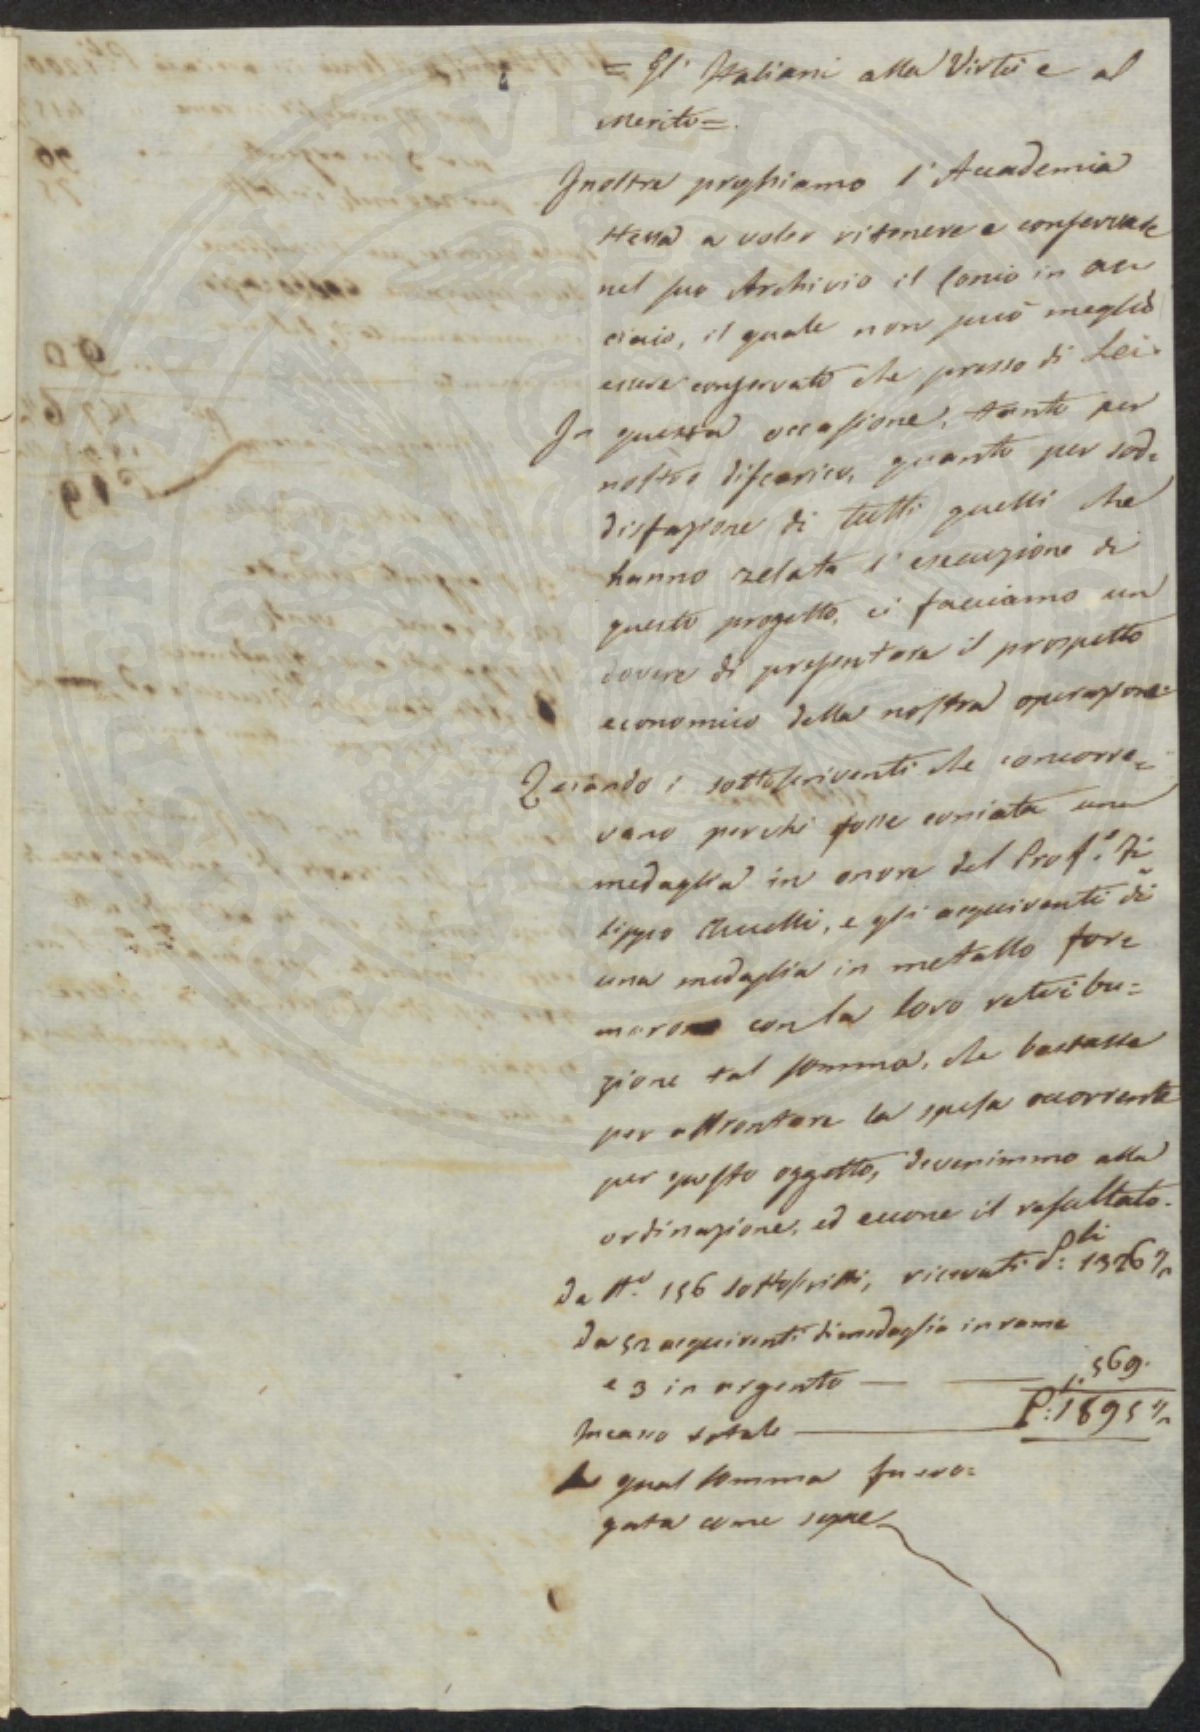 = Gl' Italiani alla Virtù e al
Merito =.
Inoltre preghiamo l'Accademia
stessa a voler ritenere e conservare
nel suo Archivio il Conio in ac
ciaio, il quale non può meglio
essere conservato che presso di Lei.
In questa occasione, tanto per
nostro discarico, quanto per sod=
disfazione di tutti quelli che
hanno zelata l'esecuzione di
questo progetto, ci facciamo un
dovere di presentare il prospetto
economico della nostra operazione=
Quando i sottoscriventi che concorre=
vano perché fosse coniata una
medaglia in onore del Prof.e Fi
lippo, e gli acquirenti di
una medaglia in metallo for=
marono con la loro retribu=
zione tal somma, che bastasse
per affrontare la spesa occorrente
per questo oggetto, devenimmo alla
ordinazione, ed eccone il resultato.
Da N.o 156 sottoscritti, ricevuti P.li 1326 ½
Da 52 acquirenti di medaglia in rame
e 3 in argento — — 569.
Incasso totale — P: 1895 ½
La qual somma fu ero=
gata come segue